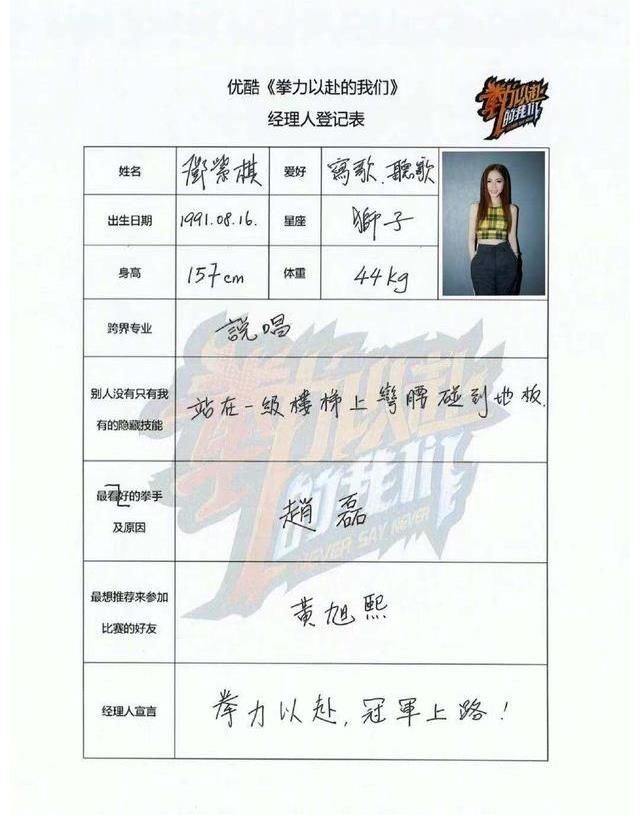 优酷《拳力以赴的我们》
拳力以赴
的我们
经理人登记表
姓名 鄧紫棋 爱好 寫歌、聽歌
出生日期 1991.08.16. 星座 獅子
身高 157cm 体重 44kg
跨界专业 說唱
别人没有只有我
有的隐藏技能
站在一級樓梯上彎腰碰到地板.
最看好的拳手
及原因
趙磊
最想推荐来参加
比赛的好友
黃旭熙
经理人宣言 拳力以赴,冠軍上路!
拳力以赴
的我们
NEVER SAY NEVER